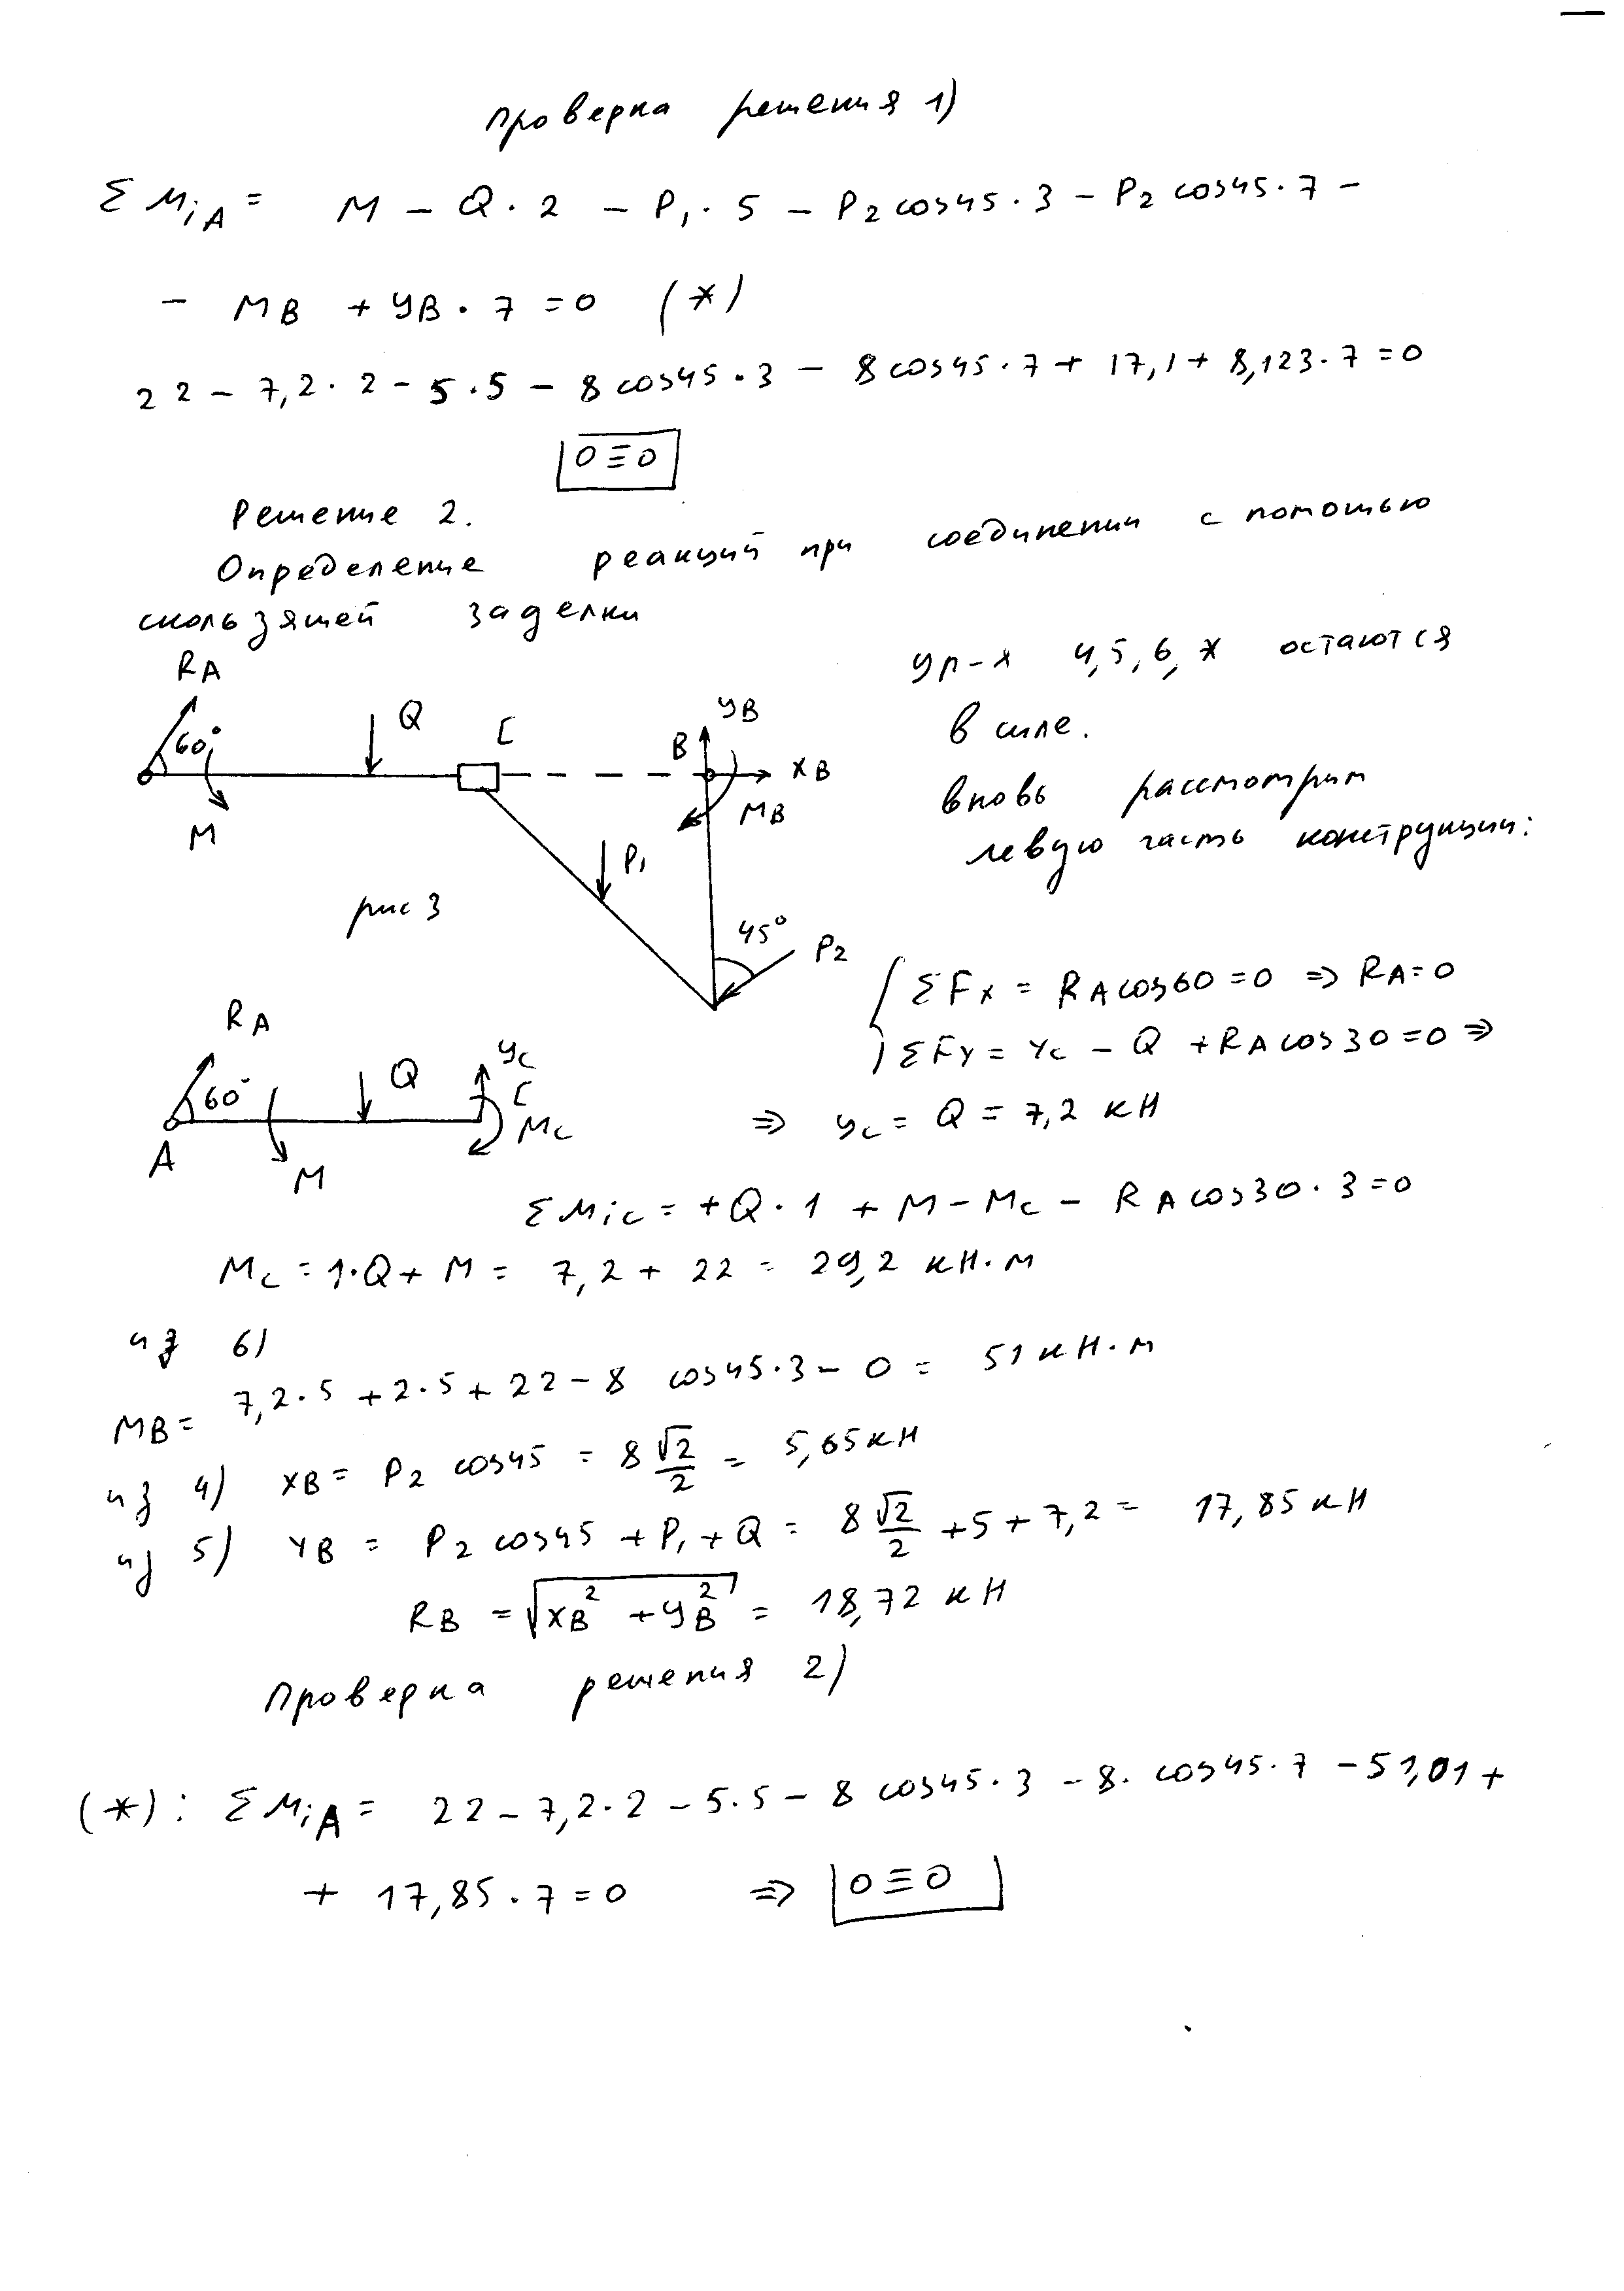 Проверка решения 1)
Σ MiA = M – Q · 2 – P1 · 5 – P2 cos45 · 3 – P2 cos45 · 7 –
– MB + YB · 7 = 0 (*)
22 – 7,2 · 2 – 5 · 5 – 8 cos45 · 3 – 8 cos45 · 7 + 17,1 + 8,123 · 7 = 0
0 ≡ 0
Решение 2.
Определение реакций при соединении с помощью
скользящей заделки
ур-я 4,5,6,* остаются
в силе.
вновь рассмотрим
левую часть конструкции:
RA
60°
M
Q
C
B
YB
XB
MB
P1
45°
P2
рис 3
RA
60°
A
M
Q
YC
C
MC
Σ FX = RA cos60 = 0 ⇒ RA = 0
Σ FY = YC – Q + RA cos30 = 0 ⇒
⇒ YC = Q = 7,2 кН
Σ MiC = + Q · 1 + M – MC – RA cos30 · 3 = 0
MC = 1 · Q + M = 7,2 + 22 = 29,2 кН·м
из 6)
MB = 7,2 · 5 + 2 · 5 + 22 – 8 cos45 · 3 – 0 = 51 кН·м
из 4) XB = P2 cos45 = 8 √2/2 = 5,65 кН
из 5) YB = P2 cos45 + P1 + Q = 8 √2/2 + 5 + 7,2 = 17,85 кН
RB = √(XB² + YB²) = 18,72 кН
Проверка решения 2)
(*): Σ MiA = 22 – 7,2 · 2 – 5 · 5 – 8 cos45 · 3 – 8 · cos45 · 7 – 51,01 +
+ 17,85 · 7 = 0 ⇒ 0 ≡ 0